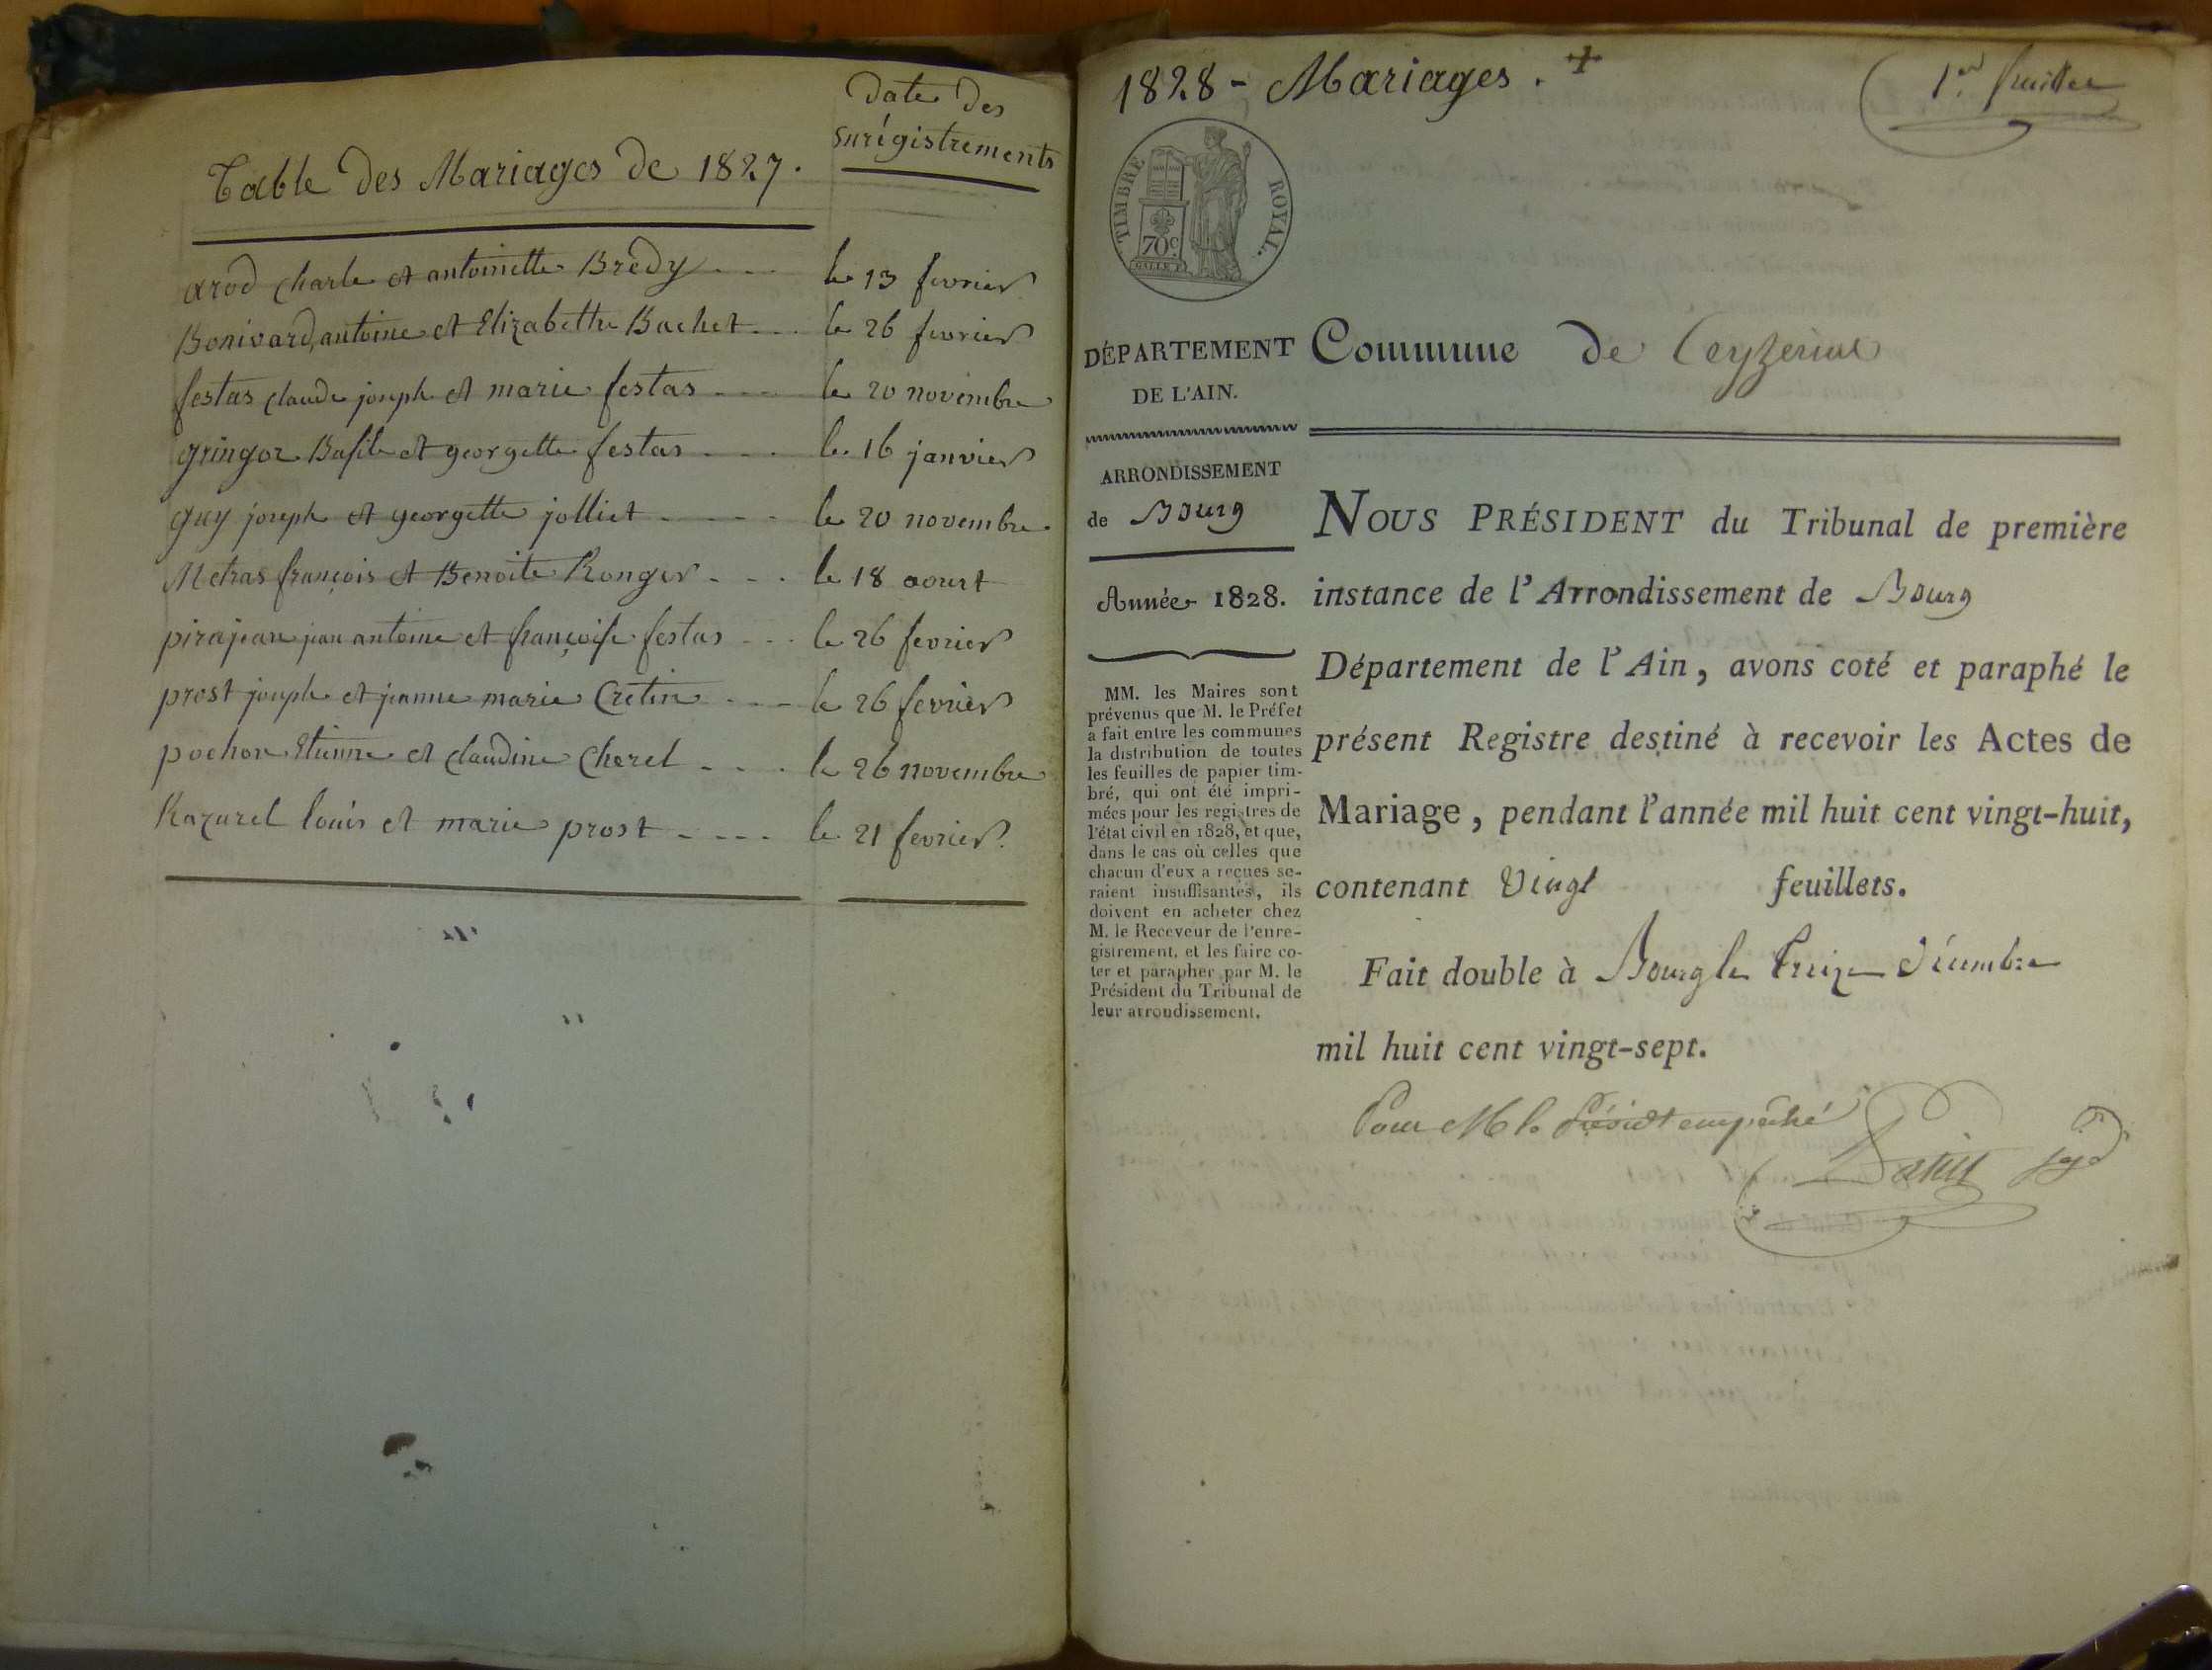 Table Des Mariages de 1827.
date des
Enrégistrements
arod charle et antoinette Bredy
le 13 fevrier
Bonivard, antoine et Elizabethe Bachet
le 26 fevrier
festas claude joseph et marie festas
le 20 novembre
gringoz Basile et georgette festas
le 16 janvier
guy joseph et georgette jolliet
le 20 novembre.
Metras françois et Benoite Ronger
le 18 aoust
pirajean jean antoine et françoise festas
le 26 fevrier
prost joseph et jeanne marie Cretin
le 26 fevrier
pochon Etienne et claudine Cherel
le 26 novembre
Razurel louis et marie prost
le 21 fevrier.
1828 - Mariages. +
1er feuillet
TIMBRE ROYAL.
70c
DÉPARTEMENT
DE L'AIN.
Commune de Ceyzeriat
ARRONDISSEMENT
de Bourg
Année 1828.
MM. les Maires sont
prévenus que M. le Préfet
a fait entre les communes
la distribution de toutes
les feuilles de papier tim-
bré, qui ont été impri-
mées pour les registres de
l'état civil en 1828, et que,
dans le cas où celles que
chacun d'eux a reçues se-
raient insuffisantes, ils
doivent en acheter chez
M. le Receveur de l'enre-
gistrement, et les faire co-
ter et parapher par M. le
Président du Tribunal de
leur arrondissement.
NOUS PRÉSIDENT du Tribunal de première
instance de l'Arrondissement de Bourg
Département de l'Ain, avons coté et paraphé le
présent Registre destiné à recevoir les Actes de
Mariage, pendant l'année mil huit cent vingt-huit,
contenant Vingt feuillets.
Fait double à Bourg le Treize Décembre
mil huit cent vingt-sept.
Pour M le Présidt empêché